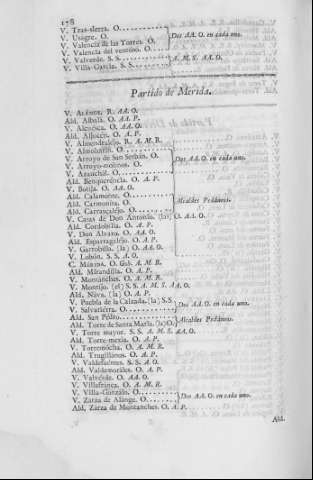 178
V. Tras-sierra. O.
V. Usagre. O.
V. Valencia de las Torres. O. Dos AA. O. en cada una.
V. Valencia del ventoso. O.
V. Valverde. S. S.
V. Villa-Garcia. S. S. A. M. S. AA. O.
Partido de Merida.
V. R. AA. O.
Ald. Albalá. O. AA. P.
V. Alcuesca. O. AA. O.
Ald. Aljucén. O. A. P.
V. Almendralejo. R. A. M. R.
V. Almoharin. O.
V. Arroyo de San Serbán. O. Dos AA. O. en cada uno.
V. Arroyo-molinos. O.
V. O.
Ald. Benquerencia. O. A. P.
V. Botija. O. AA. O.
Ald. Calamonte. O.
Ald. Carmonita. O. Alcaldes Pedáneos.
Ald. Carrascalejo. O.
V. Casas de Don Antonio. (las) O. AA. O.
Ald. Cordobilla. O. A. P.
V. Don Alvaro. O. AA. O.
Ald. Esparragalejo. O. A. P.
V. Garrobilla. (la) O. AA. O.
V. Lobón. S. S. A. O.
C. Mérida. O. Gob. A. M. R.
Ald. Mirandilla. O. A. P.
V. Montánches. O. A. M. R.
V. Montijo. (el) S. S. A. M. S. AA. O.
Ald. Nava. (la) O. A. P.
V. Puebla de la Calzada. (la) S. S. Dos AA. O. en cada una.
V. Salvatierra. O.
Ald. San Pedro. Alcaldes Pedáneos.
Ald. Torre de Santa María. (la) O.
V. Torre mayor. S. S. A. M. S. AA. O.
Ald. Torre-mexía. O. A. P.
V. Torremocha. O. A. M. R.
Ald. Truxillanos. O. A. P.
V. Valdefuentes. S. S. A. O.
Ald. Valdemorales. O. A. P.
V. Valverde. O. AA. O.
V. Villafranca. O. A. M. R.
V. Villa-Gonzalo. O. Dos AA. O. en cada una.
V. Zarza de Alange. O.
Ald. Zarza de Montanches. O. A. P.
Ald.